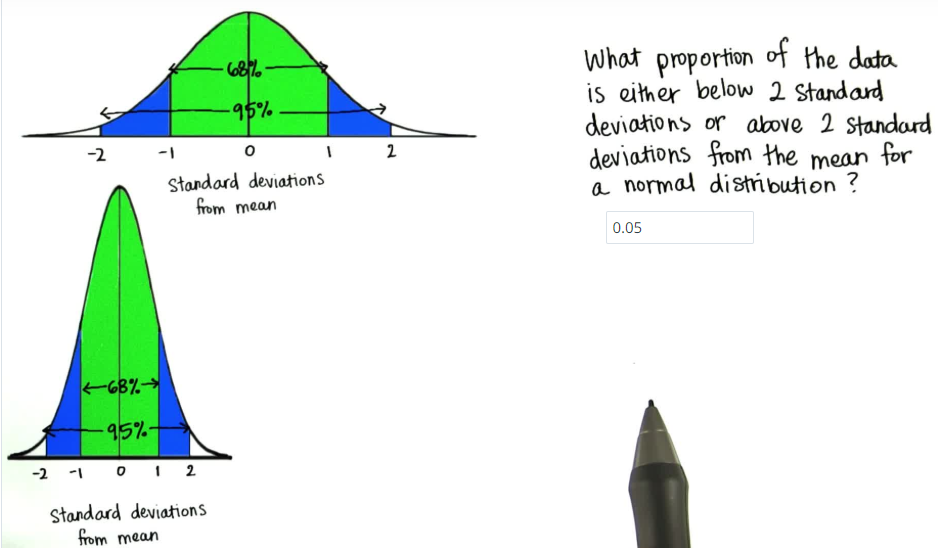 68%
95%
-2 -1 0 1 2
Standard deviations
from mean
68%
95%
-2 -1 0 1 2
Standard deviations
from mean
What proportion of the data
is either below 2 standard
deviations or above 2 standard
deviations from the mean for
a normal distribution ?
0.05